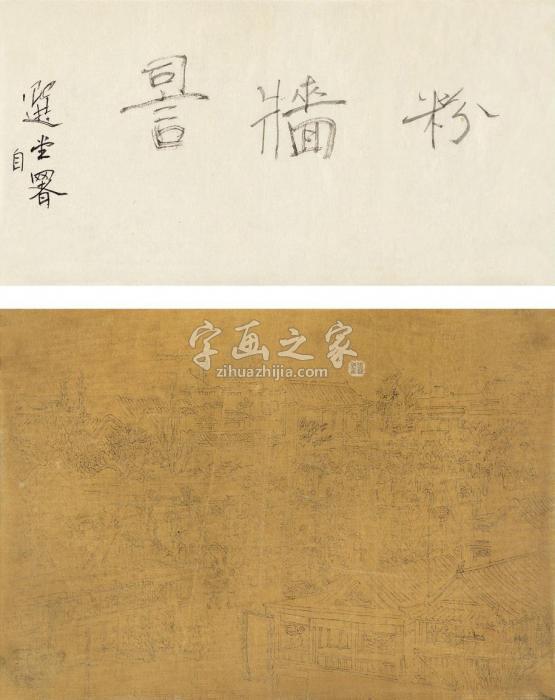 粉牆䛐
選堂署
自
字画之家
zihuazhijia.com